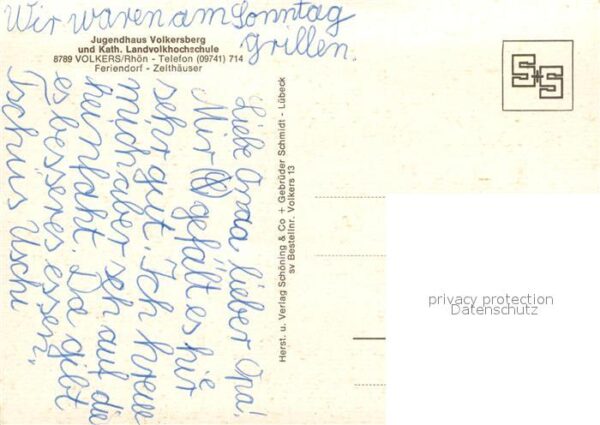 Wir waren am Sonntag
Grillen.
Jugendhaus Volkersberg
und Kath. Landvolkhochschule
8789 VOLKERS/Rhön - Telefon (09741) 714
Feriendorf - Zelthäuser
Liebe Omda, lieber Opa!
Mir gefällt es hie
sehr gut. Ich freue
mich aber seh auf die
heimfaht. Da gibt
es besseres essen.
Tschüs Uschi
Herst. u. Verlag Schöning & Co + Gebrüder Schmidt - Lübeck
sv Bestellnr. Volkers 13
S+S
privacy protection
Datenschutz